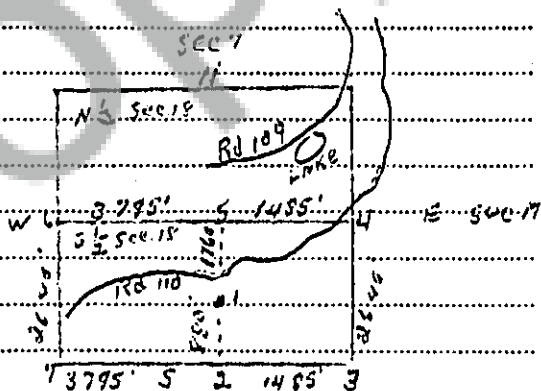 Sec 7
N
N ½ Sec. 18
Rd 109
LAKE
W 6 3795' 5 1485' 4 E Sec 17
S ½ Sec. 18
1760'
2640'
Rd 110
1
880'
2640'
1 3795' S 2 1485' 3